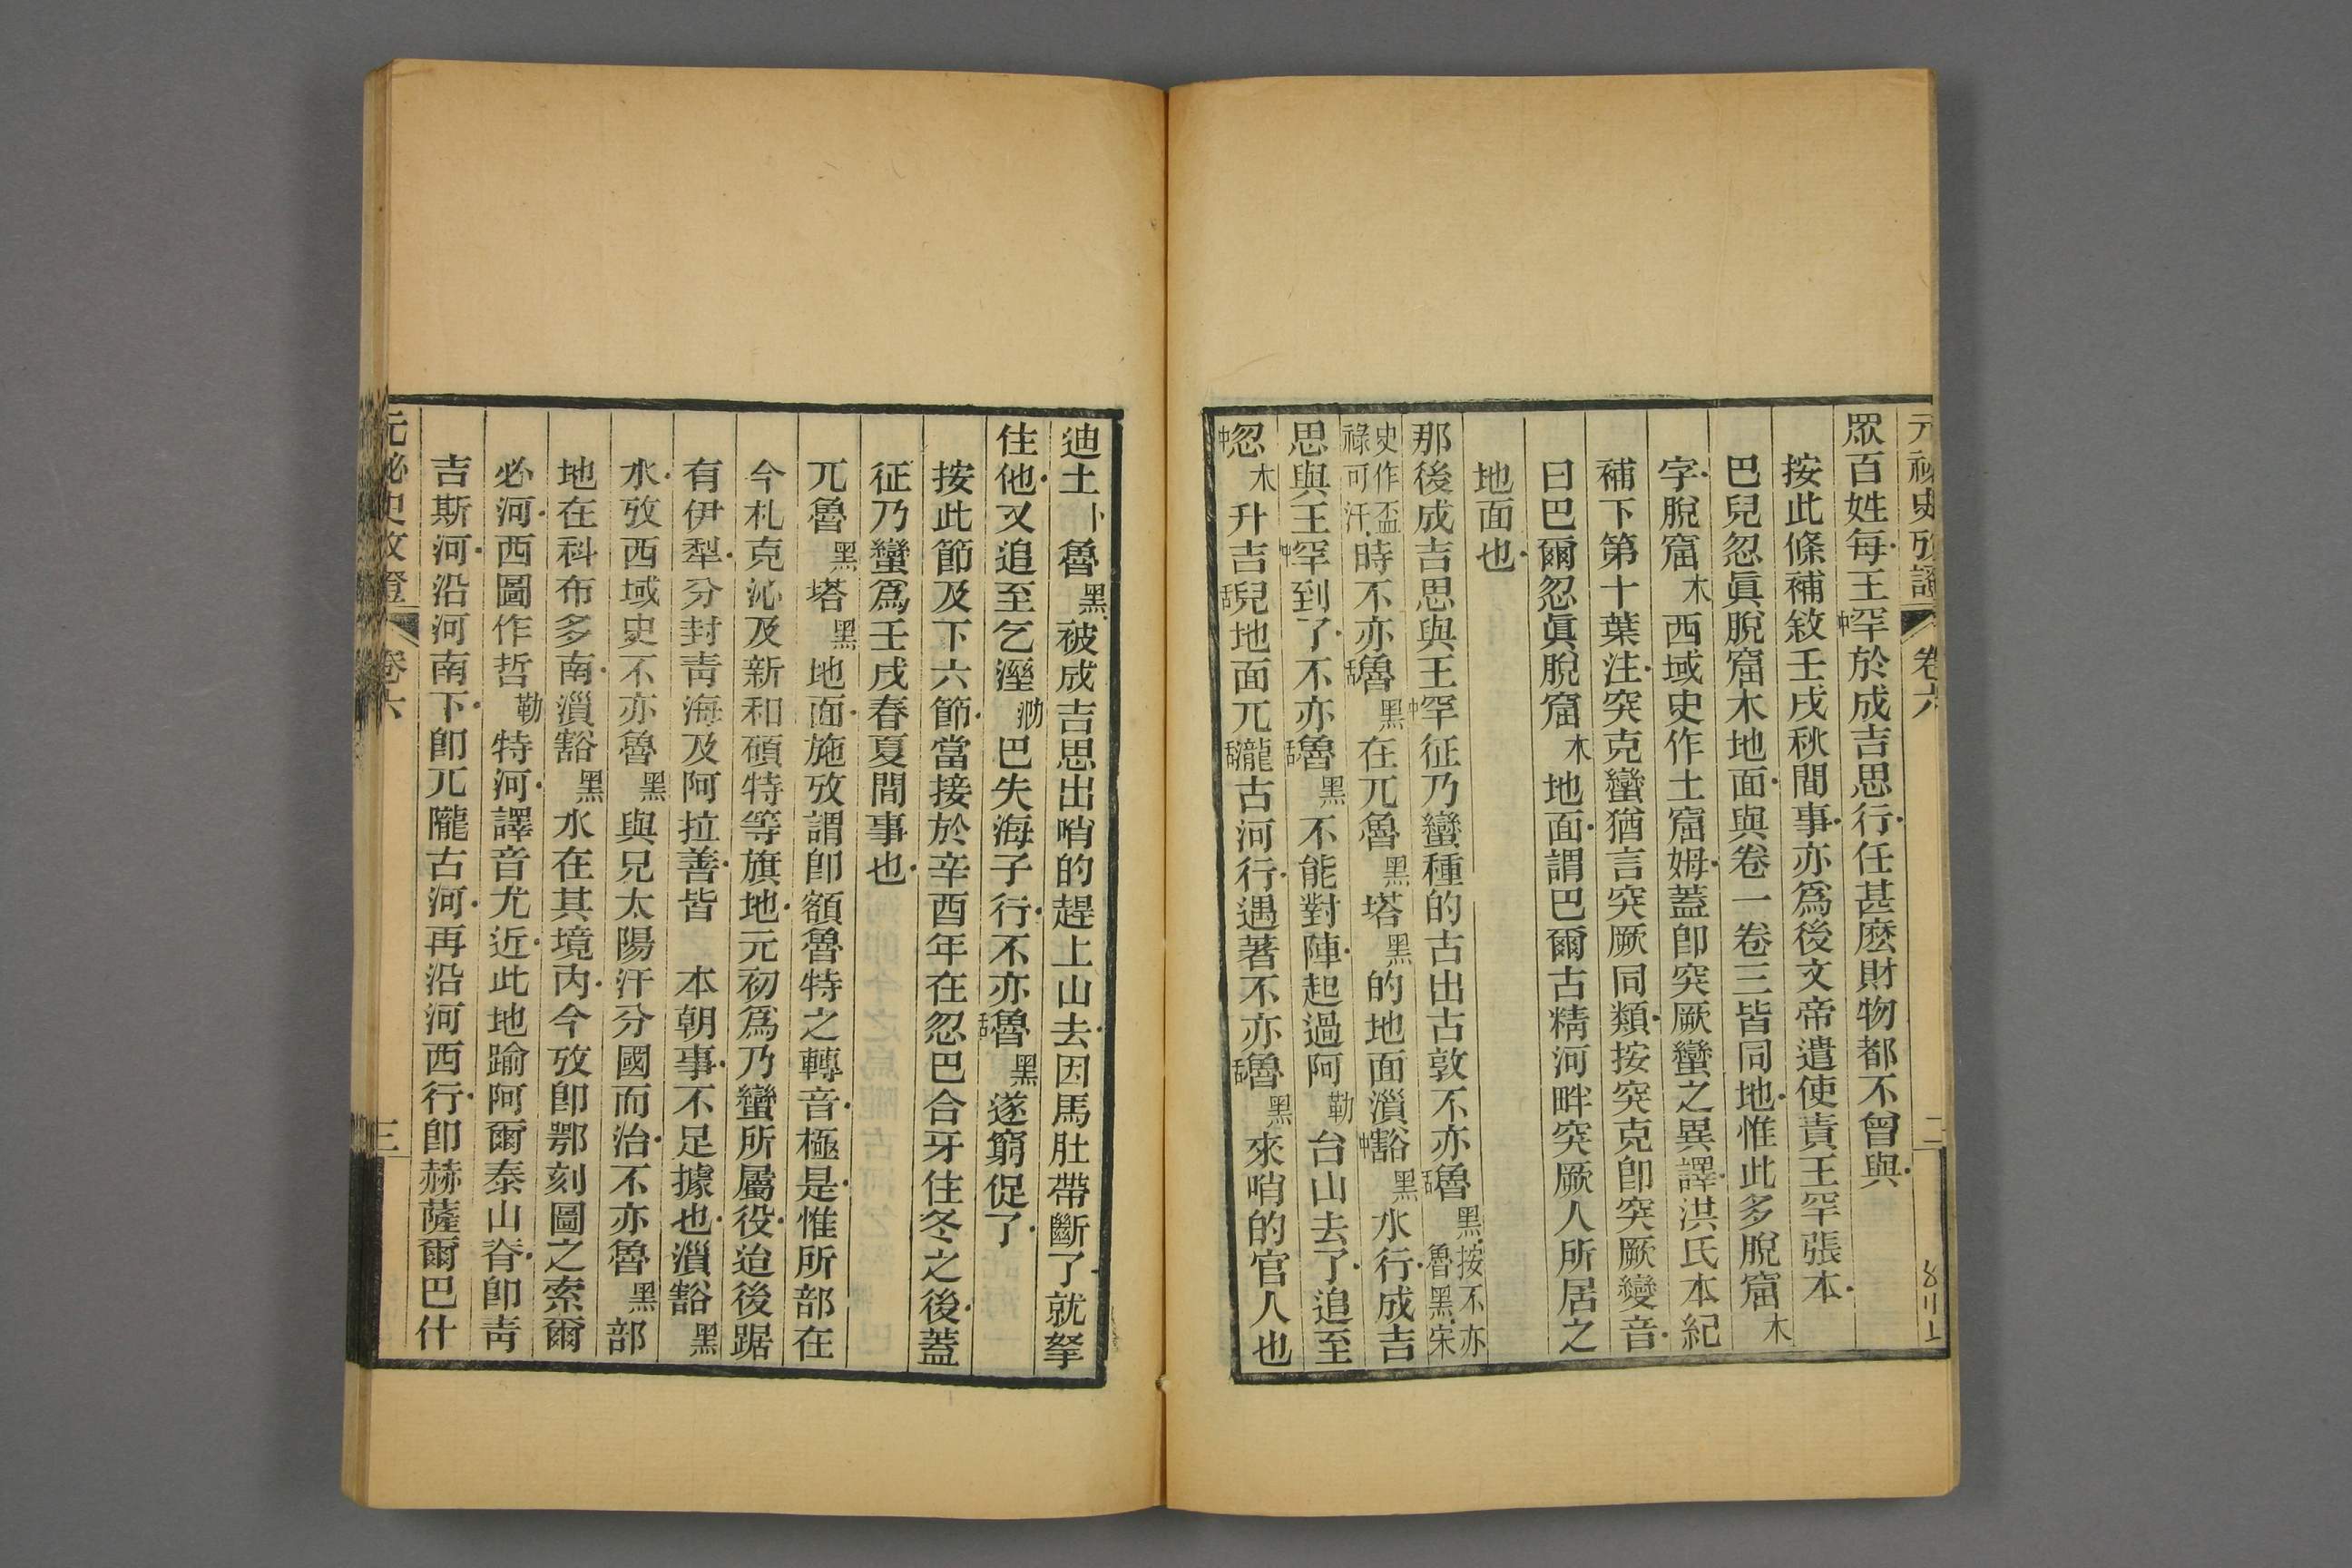 元祕史攷證　卷六　二
眾百姓每王中罕於成吉思行任甚麽財物都不曾與
按此條補敘壬戌秋間事亦爲後文帝遣使責王罕張本
巴兒忽眞脫窟木地面與卷一卷三皆同地惟此多脫窟木
字脫窟木西域史作土窟姆蓋卽突厥蠻之異譯洪氏本紀
補下第十葉注突克蠻猶言突厥同類按突克卽突厥變音
曰巴爾忽眞脫窟木地面謂巴爾古精河畔突厥人所居之
地面也
那後成吉思與王中罕征乃蠻種的古出古敦不亦舌魯黑按不亦魯黑宋
史作盃祿可汗時不亦舌魯黑在兀魯黑塔黑的地面溑中豁黑水行成吉
思與王中罕到了不亦舌魯黑不能對陣起過阿勒台山去了追至
中忽木升吉舌兒地面兀舌瀧古河行遇著不亦舌魯黑來哨的官人也
迪土卜魯黑被成吉思出哨的趕上山去因馬肚帶斷了就拏
住他又追至乞溼泐巴失海子行不亦舌魯黑遂窮促了
按此節及下六節當接於辛酉年在忽巴合牙住冬之後蓋
征乃蠻爲壬戌春夏間事也
兀魯黑塔黑地面施攷謂卽額魯特之轉音極是惟所部在
今札克沁及新和碩特等旗地元初爲乃蠻所屬役迨後踞
有伊犁分封青海及阿拉善皆　本朝事不足據也溑豁黑
水攷西域史不亦魯黑與兄太陽汗分國而治不亦魯黑部
地在科布多南溑豁黑水在其境內今攷卽鄂刻圖之索爾
必河西圖作哲勒特河譯音尤近此地踰阿爾泰山脊卽青
吉斯河沿河南下卽兀隴古河再沿河西行卽赫薩爾巴什
元祕史攷證　卷六　三